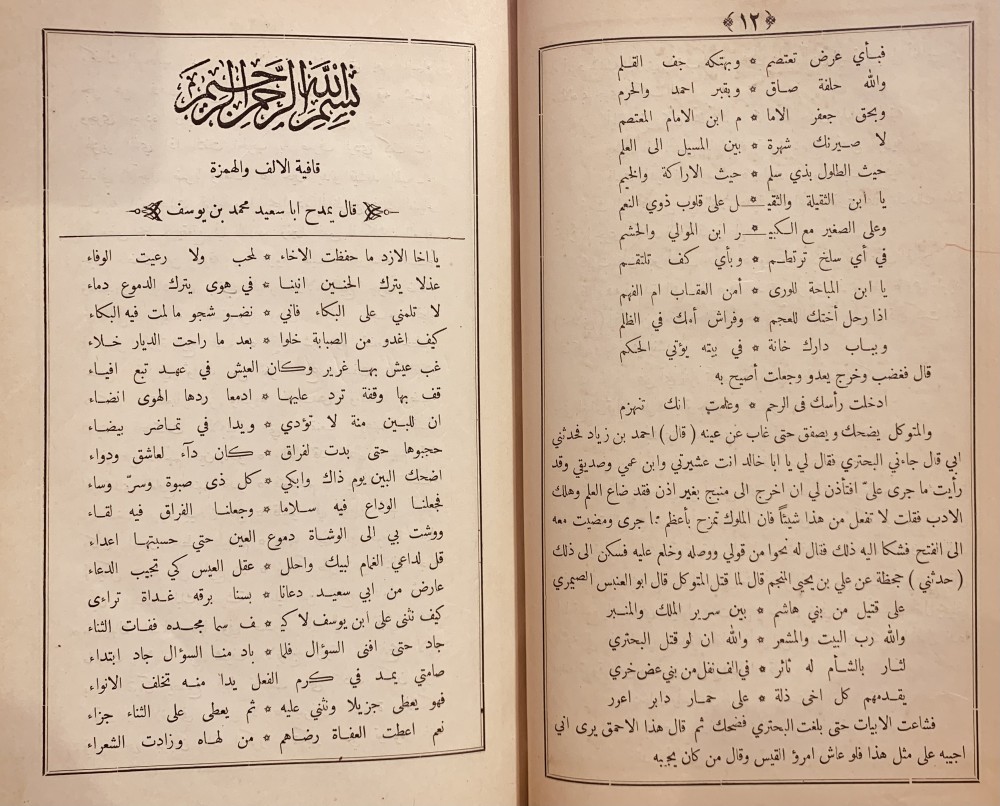 ﴿١٢﴾
فبأي عرض تعتصم * وبهتكه جف القلم
والله حلفة صادق * وبقبر احمد والحرم
وبحق جعفر الاما * م ابن الامام المعتصم
لا صيرنك شهرة * بين المسيل الى العلم
حيث الطلول بذي سلم * حيث الاراكة والخيم
يا ابن الثقيلة والثقيـ * ـل على قلوب ذوي النعم
وعلى الصغير مع الكبيـ * ـر ابن الموالي والحشم
في أي سلح ترتطم * وبأي كف تلتقم
يا ابن المباحة للورى * أمن العفاب ام الفهم
اذا رحل أختك للعجم * وفراش أمك في الظلم
وبباب دارك خانة * في بيته يؤتي الحكم
قال فغضب وخرج يعدو وجعلت أصيح به
ادخلت رأسك في الرحم * وعلمت انك تنهزم
والمتوكل يضحك ويصفق حتى غاب عن عينه ( قال ) احمد بن زياد فحدثني
ابي قال جاءني البحتري فقال لي يا ابا خالد انت عشيرتي وابن عمي وصديقي وقد
رأيت ما جرى عليّ افتأذن لي ان اخرج الى منبج بغير اذن فقد ضاع العلم وهلك
الادب فقلت لا تفعل من هذا شيئاً فان الملوك تمزح بأعظم مما جرى ومضيت معه
الى الفتح فشكا اليه ذلك فقال له نحوا من قولي ووصله وخلع عليه فسكن الى ذلك
( حدثني ) جحظة عن علي بن يحيى المنجم قال لما قتل المتوكل قال ابو العنبس الصيمري
على قتيل من بني هاشم * بين سرير الملك والمنبر
والله رب البيت والمشعر * والله ان لو قتل البحتري
لثار بالشأم له ثائر * في الف نغل من بني عض خري
يقدمهم كل اخى ذلة * على حمار دابر اعور
فشاعت الابيات حتى بلغت البحتري فضحك ثم قال هذا الاحمق يرى اني
اجيبه على مثل هذا فلو عاش امرؤ القيس وقال من كان يجيبه
بسم الله الرحمن الرحيم
قافية الالف والهمزة
قال يمدح ابا سعيد محمد بن يوسف
يا اخا الازد ما حفظت الاخاء * لمحب ولا رعيت الوفاء
عذلا يترك الحنين انينا * في هوى يترك الدموع دماء
لا تلمني على البكاء فاني * نضو شجو ما لمت فيه البكاء
كيف اغدو من الصبابة خلوا * بعد ما راحت الديار خلاء
غب عيش بها غرير وكان العيش في عهد تبع افياء
قف بها وقفة ترد عليها * ادمعا ردها الهوى انضاء
ان للبين منة لا تؤدي * ويدا في تماضر بيضاء
حجبوها حتى بدت لفراق * كان دآء لعاشق ودواء
اضحك البين يوم ذاك وابكي * كل ذى صبوة وسرّ وساء
فجعلنا الوداع فيه سلاما * وجعلنا الفراق فيه لقاء
ووشت بي الى الوشاة دموع العين حتي حسبتها اعداء
قل لداعي الغمام لبيك واحلل * عقل العيس كي تجيب الدعاء
عارض من ابي سعيد دعانا * بسنا برقه غداة تراءى
كيف نثنى على ابن يوسف لا كيـ * ف سما مجده ففات الثناء
جاد حتى افنى السؤال فلما * باد منا السؤال جاد ابتداء
صامتي يمد في كرم الفعل يدا منه تخلف الانواء
فهو يعطي جزيلا ونثني عليه * ثم يعطى على الثناء جزاء
نعم اعطت العفاة رضاهم * من لهاه وزادت الشعراء